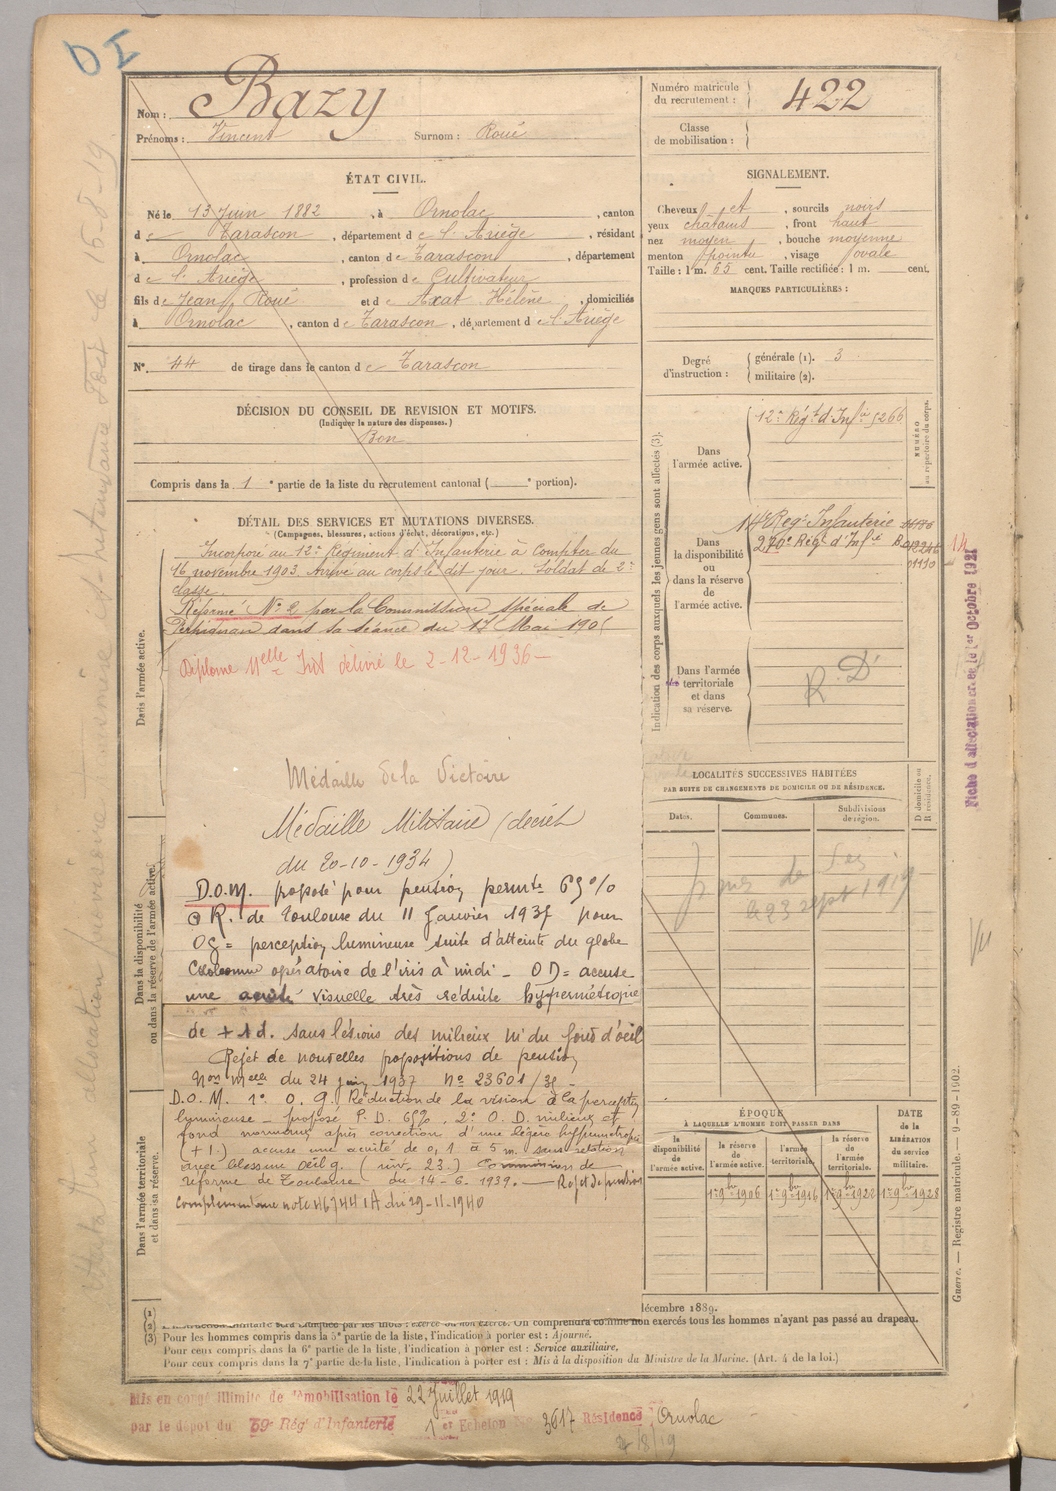 DI
Nom : Bazy
Prénoms : Vincent Surnom : Roué
Numéro matricule du recrutement : 422
Classe de mobilisation :
ÉTAT CIVIL.
Né le 13 Juin 1882, à Ornolac, canton
de Tarascon, département de l'Ariège, résidant
à Ornolac, canton de Tarascon, département
de l'Ariège, profession de Cultivateur
fils de Jean Roué et de Axat Hélène, domiciliés
à Ornolac, canton de Tarascon, département de l'Ariège
N° 44 de tirage dans le canton de Tarascon
SIGNALEMENT.
Cheveux et, sourcils noirs
yeux châtains, front haut
nez moyen, bouche moyenne
menton pointu, visage ovale
Taille : 1 m. 65 cent. Taille rectifiée : 1 m. cent.
MARQUES PARTICULIÈRES :
Degré d'instruction : générale (1). 3
militaire (2).
DÉCISION DU CONSEIL DE REVISION ET MOTIFS.
(Indiquer la nature des dispenses.)
Bon
Compris dans la 1e partie de la liste du recrutement cantonal ( e portion).
DÉTAIL DES SERVICES ET MUTATIONS DIVERSES.
(Campagnes, blessures, actions d'éclat, décorations, etc.)
Dans l'armée active.
Incorporé au 12e Régiment d'Infanterie à compter du
16 novembre 1903. Arrivé au corps le dit jour. Soldat de 2e
classe.
Réformé N° 2 par la Commission spéciale de
Perpignan dans sa séance du 17 Mai 190
Diplôme Melle délivré le 2-12-1936
Médaille de la Victoire
Médaille Militaire (décret
du 20-10-1934)
Dans la disponibilité
ou dans la réserve de l'armée active.
D.O.M. proposé pour pension permte 65%
R. de Toulouse du 11 Janvier 1935 pour
OG = perception lumineuse suite d'atteinte du globe
opératoire de l'iris à midi - OD = accuse
une acuité visuelle très réduite hypermétropie
de + 1 d. sans lésions des milieux ni du fond d'oeil
Rejet de nouvelles propositions de pension
du 24 juin 1937 n° 23601/35 -
D.O.M. 1° O.G. Réduction de la vision à la perception
lumineuse - proposé P.D. 65% 2° O.D. milieux et
fond normaux après correction d'une légère hypermétropie
(+1.) accuse une acuité de 0,1 à 5 m. sans relation
avec blessure oeil g. (inv. 23.) Commission de
réforme de Toulouse du 14-6.1939. — Rejet de pension
complémentaire note 46744 1A du 29-11-1940
Dans l'armée territoriale
et dans sa réserve.
Indication des corps auxquels les jeunes gens sont affectés (3).
NUMÉRO
au répertoire du corps.
Dans
l'armée active.
12e Régt d'Infie 5266
Dans
la disponibilité
ou
dans la réserve
de
l'armée active.
14e Regt Infanterie
270e Régt d'Infie
01110
Dans l'armée
territoriale
et dans
sa réserve.
R.D
LOCALITÉS SUCCESSIVES HABITÉES
PAR SUITE DE CHANGEMENTS DE DOMICILE OU DE RÉSIDENCE.
Dates. Communes. Subdivisions de région. D domicile ou R résidence.
le 23 sept 1919
ÉPOQUE
À LAQUELLE L'HOMME DOIT PASSER DANS
DATE
de la
LIBÉRATION
du
service
militaire.
la disponibilité de l'armée active.
la réserve de l'armée active.
l'armée territoriale.
la réserve de l'armée territoriale.
1er 9bre 1906 1er 9bre 1916 1er 9bre 1922 1er 9bre 1928
Fiche d'affectation créée le 1er Octobre 1921
Guerre. — Registre matricule. — 9-89-1902.
(1)
décembre 1889.
(2) On comprendra comme non exercés tous les hommes n'ayant pas passé au drapeau.
(3) Pour les hommes compris dans la 5e partie de la liste, l'indication à porter est : Ajourné.
Pour ceux compris dans la 6e partie de la liste, l'indication à porter est : Service auxiliaire.
Pour ceux compris dans la 7e partie de la liste, l'indication à porter est : Mis à la disposition du Ministre de la Marine. (Art. 4 de la loi.)
Mis en congé illimité de démobilisation le 22 Juillet 1919
par le dépôt du 59e Rég d'Infanterie 1er Echelon 3617 Résidence Ornolac